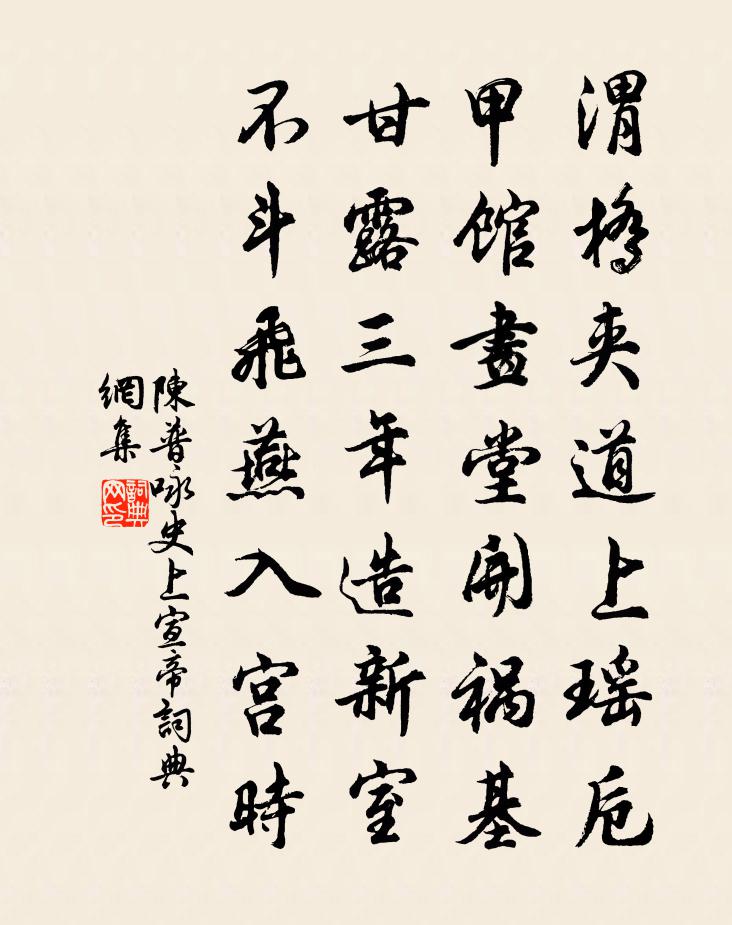 渭橋夾道上瑶卮
甲馆畫堂開祸基
甘露三年造新室
不斗飛燕入宫時
陳普咏史上宣帝詞典
網集
詞典
网印